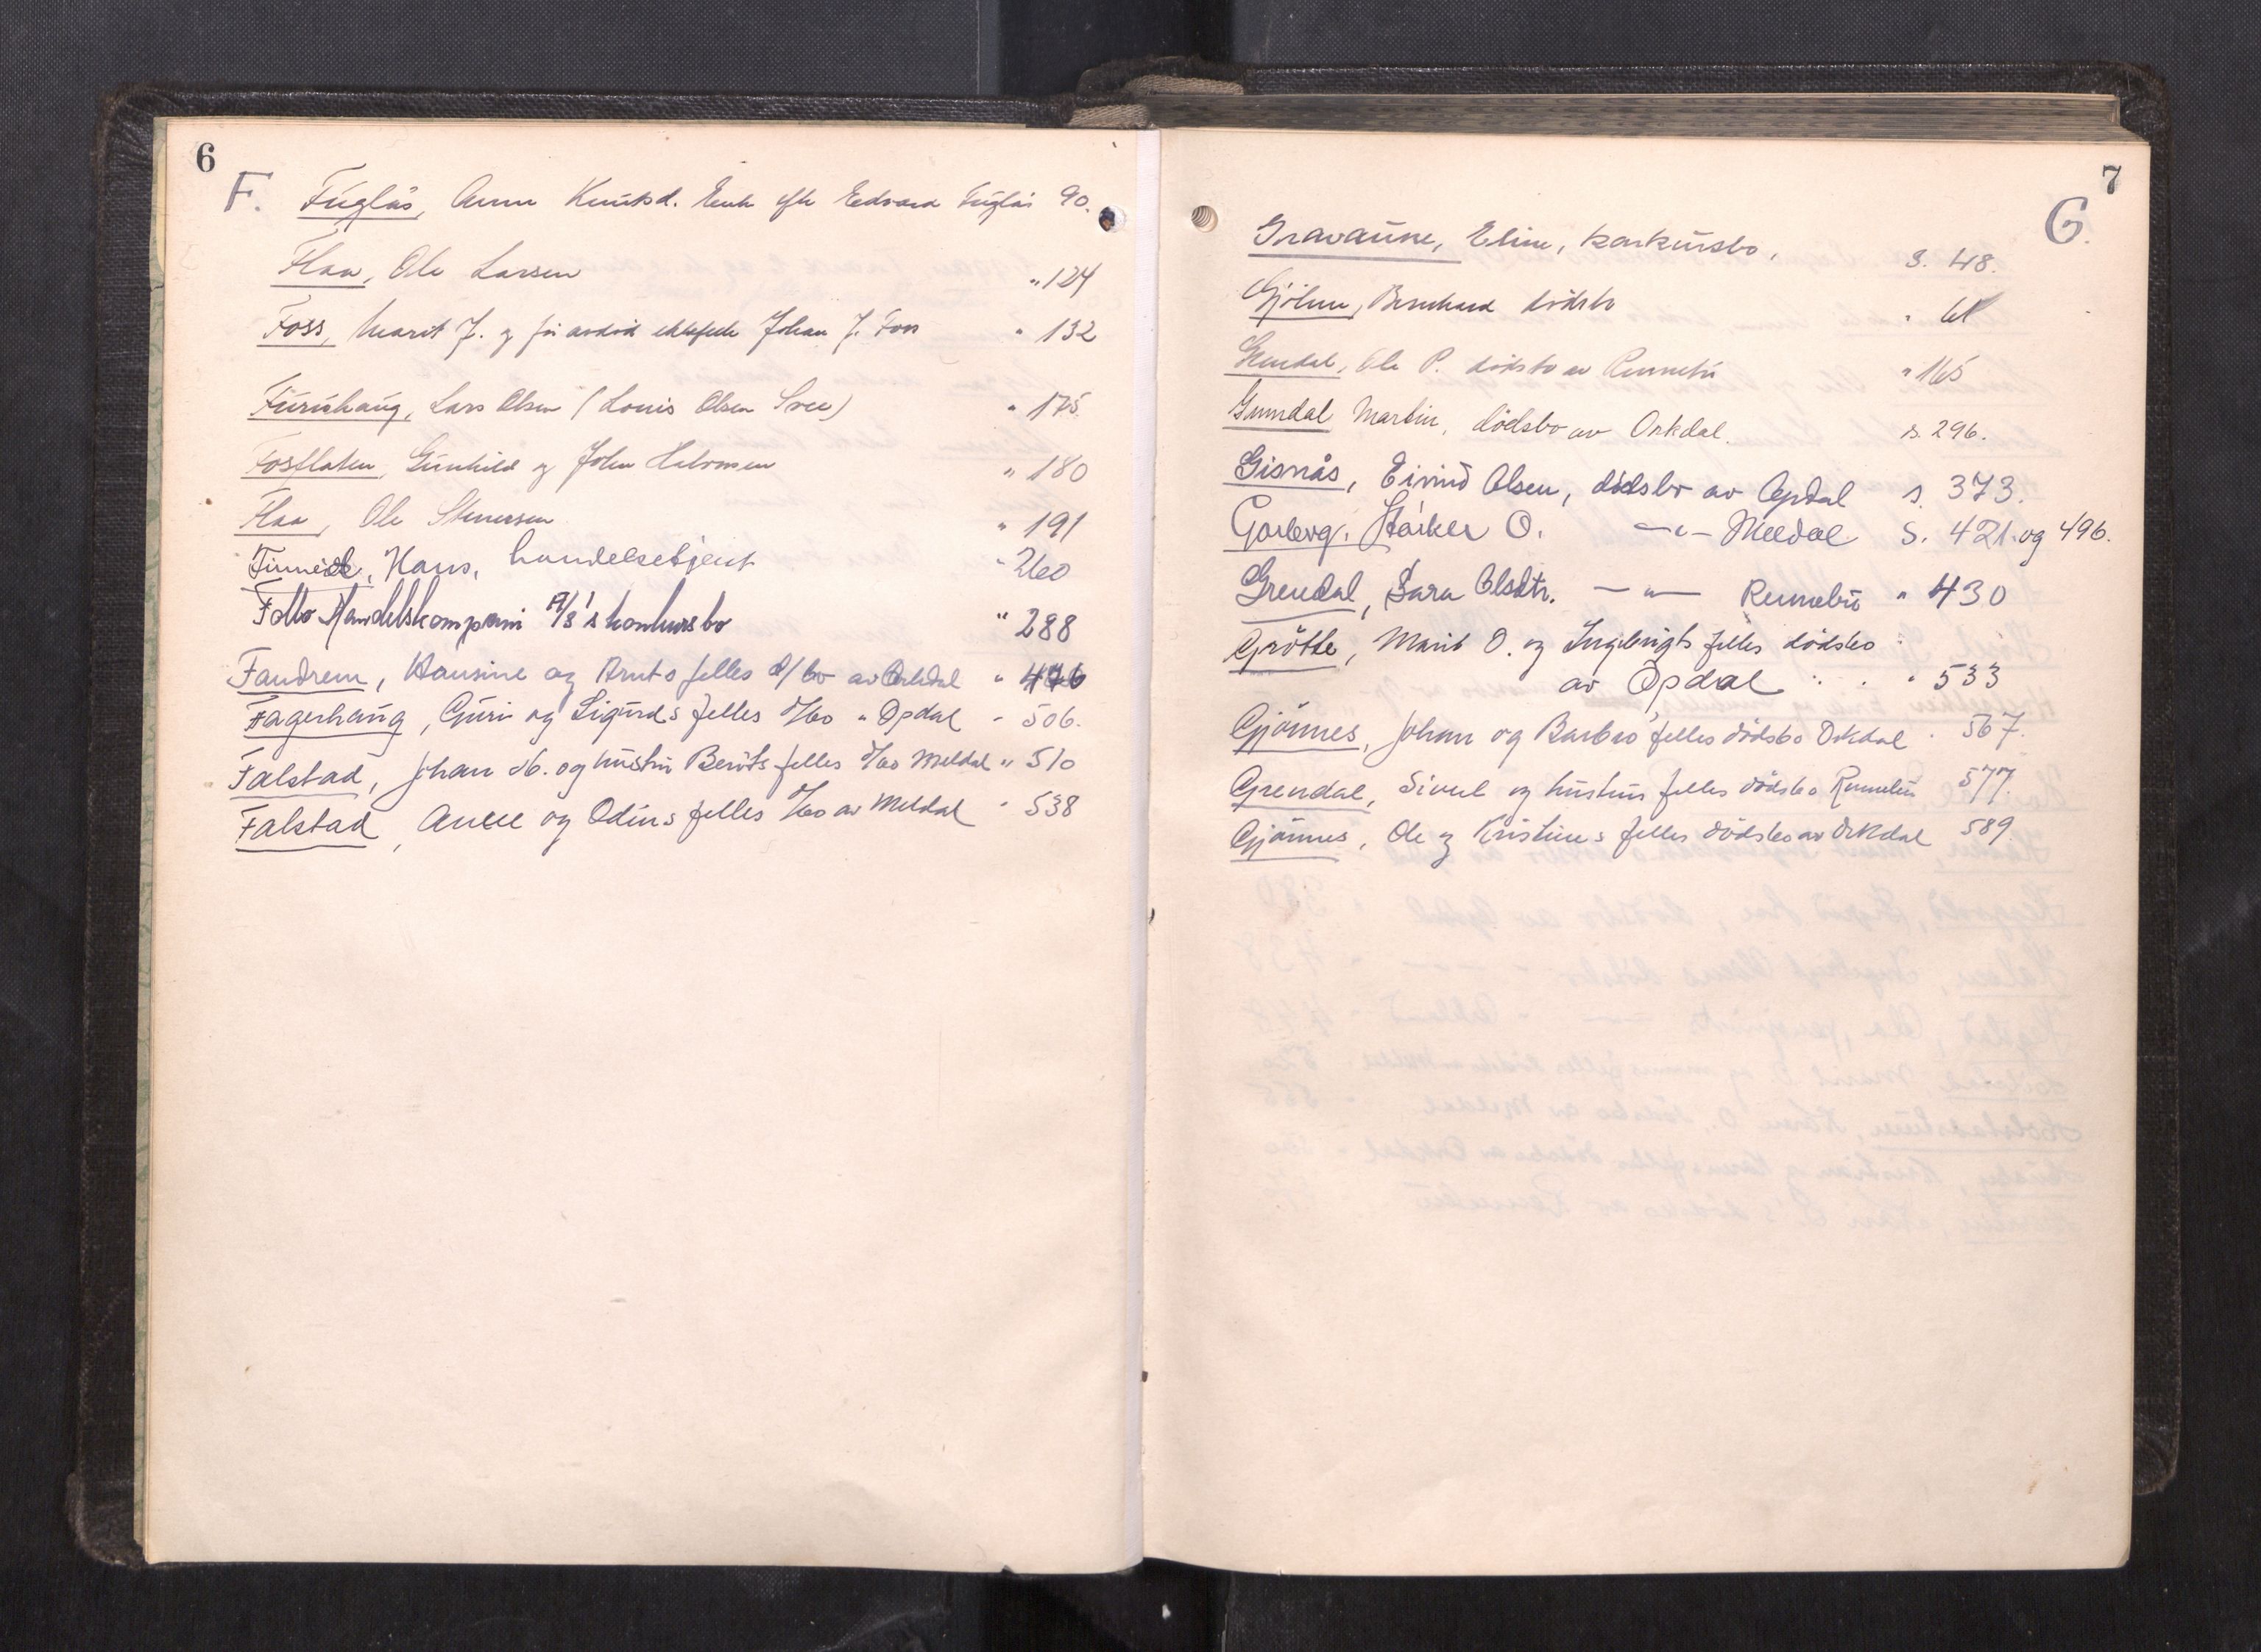 6
F. Fuglås, Anna Knutsd. Enke efter Edvard Fuglås 90.
Flaa, Ole Larsen " 124
Foss, Marit J. og før avdød ektefelle Johan J. Foss " 132
Furuhaug, Lars Olsen (Louis Olsen Svee) " 175.
Fosflaten, Gunhild og John Halvorsen " 180
Flaa, Ole Stenersen " 191
Hans, handelsbetjent " 260
Follo Handelskompani A/S's konkursbo " 288
Fandrem, Hansine og Arnts felles d/bo av Orkdal " 476
Fagerhaug, Guri og Sigurds felles d/bo " Opdal " 506.
Falstad, Johan og hustru Berits felles d/bo Meldal " 510
Falstad, Anne og Odins felles d/bo av Meldal " 538
7
G.
Gravaune, Eline, konkursbo, s. 48.
Gjølme, Bernhard dødsbo " 61
Grendal, Ole P. dødsbo av Rennebu " 165
Gumdal Martin, dødsbo av Orkdal. s. 296.
Gisnås, Eivind Olsen, dødsbo av Opdal s. 373.
Garberg, Stårker O. —"— Meldal S. 421. og 496.
Grendal, Sara Olsdtr. —"— Rennebu " 430
Grötte, Marit O. og Ingebrigts felles dödsbo
av Opdal " 533
Gjönnes, Johan og Barbro felles dödsbo Orkdal " 567.
Grendal, Sivert og hustrus felles dödsbo Rennebu 577.
Gjönnes, Ole og Kristines felles dödsbo av Orkdal 589.